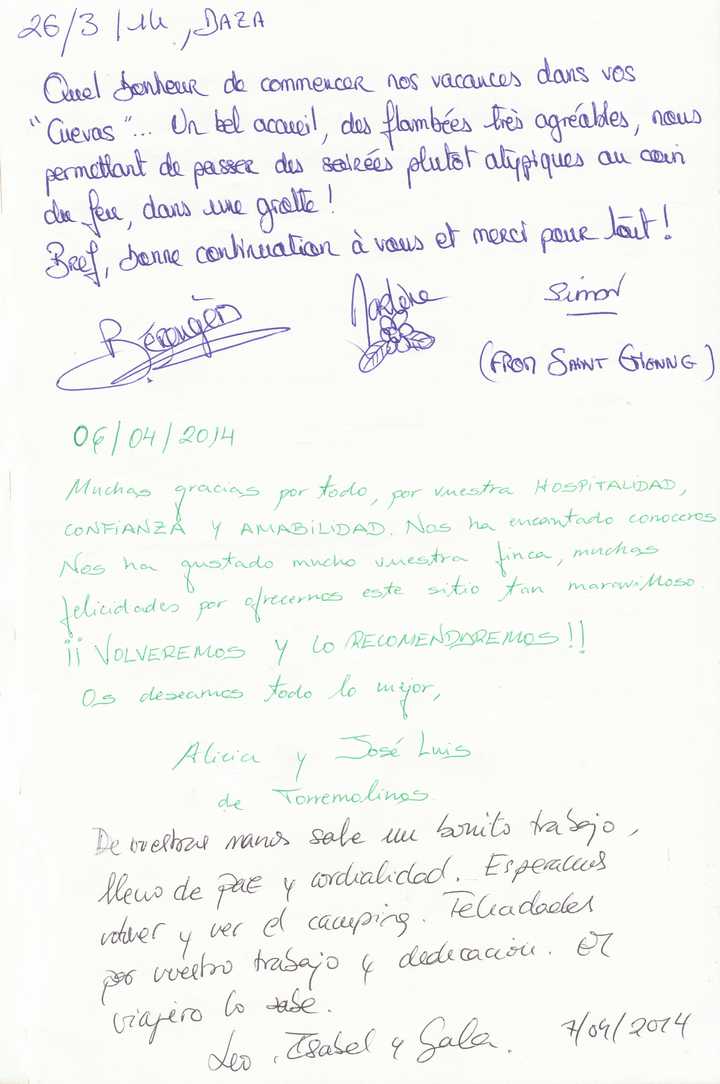 26/3/14, BAZA
Quel bonheur de commencer nos vacances dans vos
"Cuevas"... Un bel accueil, des flambées très agréables, nous
permettant de passer des soirées plutôt atypiques au coin
du feu, dans une grotte!
Bref, bonne continuation à vous et merci pour tout!
Bérangère Marlène Simon
(FROM SAINT ETIENNE)
06/04/2014
Muchas gracias por todo, por vuestra HOSPITALIDAD,
CONFIANZA Y AMABILIDAD. Nos ha encantado conoceros
Nos ha gustado mucho vuestra finca, muchas
felicidades por ofrecernos este sitio tan maravilloso.
¡¡ VOLVEREMOS Y LO RECOMENDAREMOS!!
Os deseamos todo lo mejor,
Alicia y José Luis
de Torremolinos.
De vuestras manos sale un bonito trabajo,
lleno de paz y cordialidad. Esperamos
volver y ver el camping. Felicidades
por vuestro trabajo y dedicación. El
viajero lo sabe.
Leo, Isabel y Gala. 7/04/2014